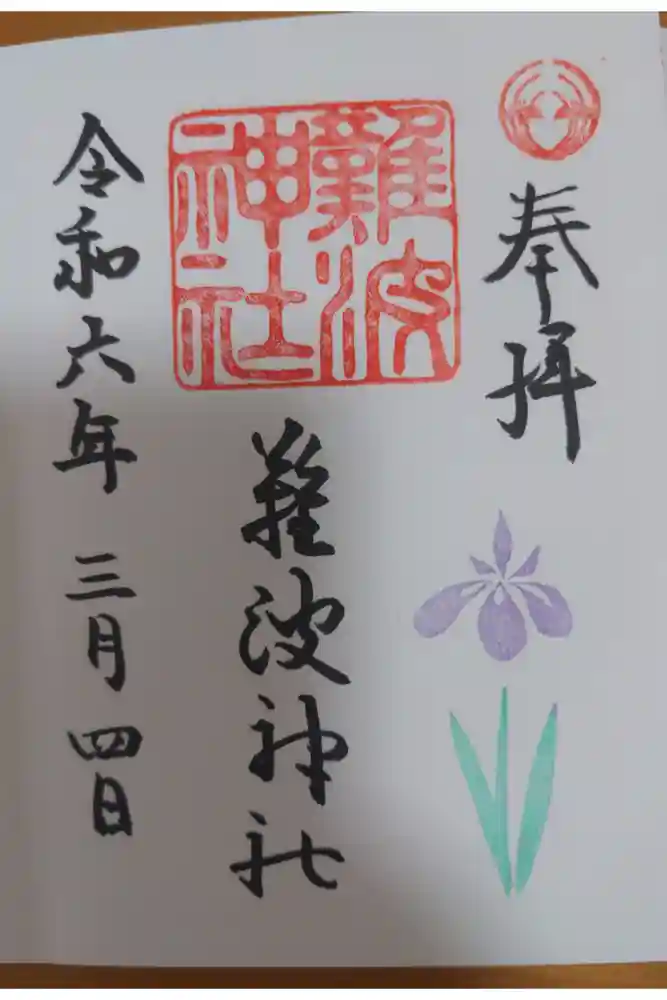 奉拝
難波神社
難波神社
令和六年 三月 四日